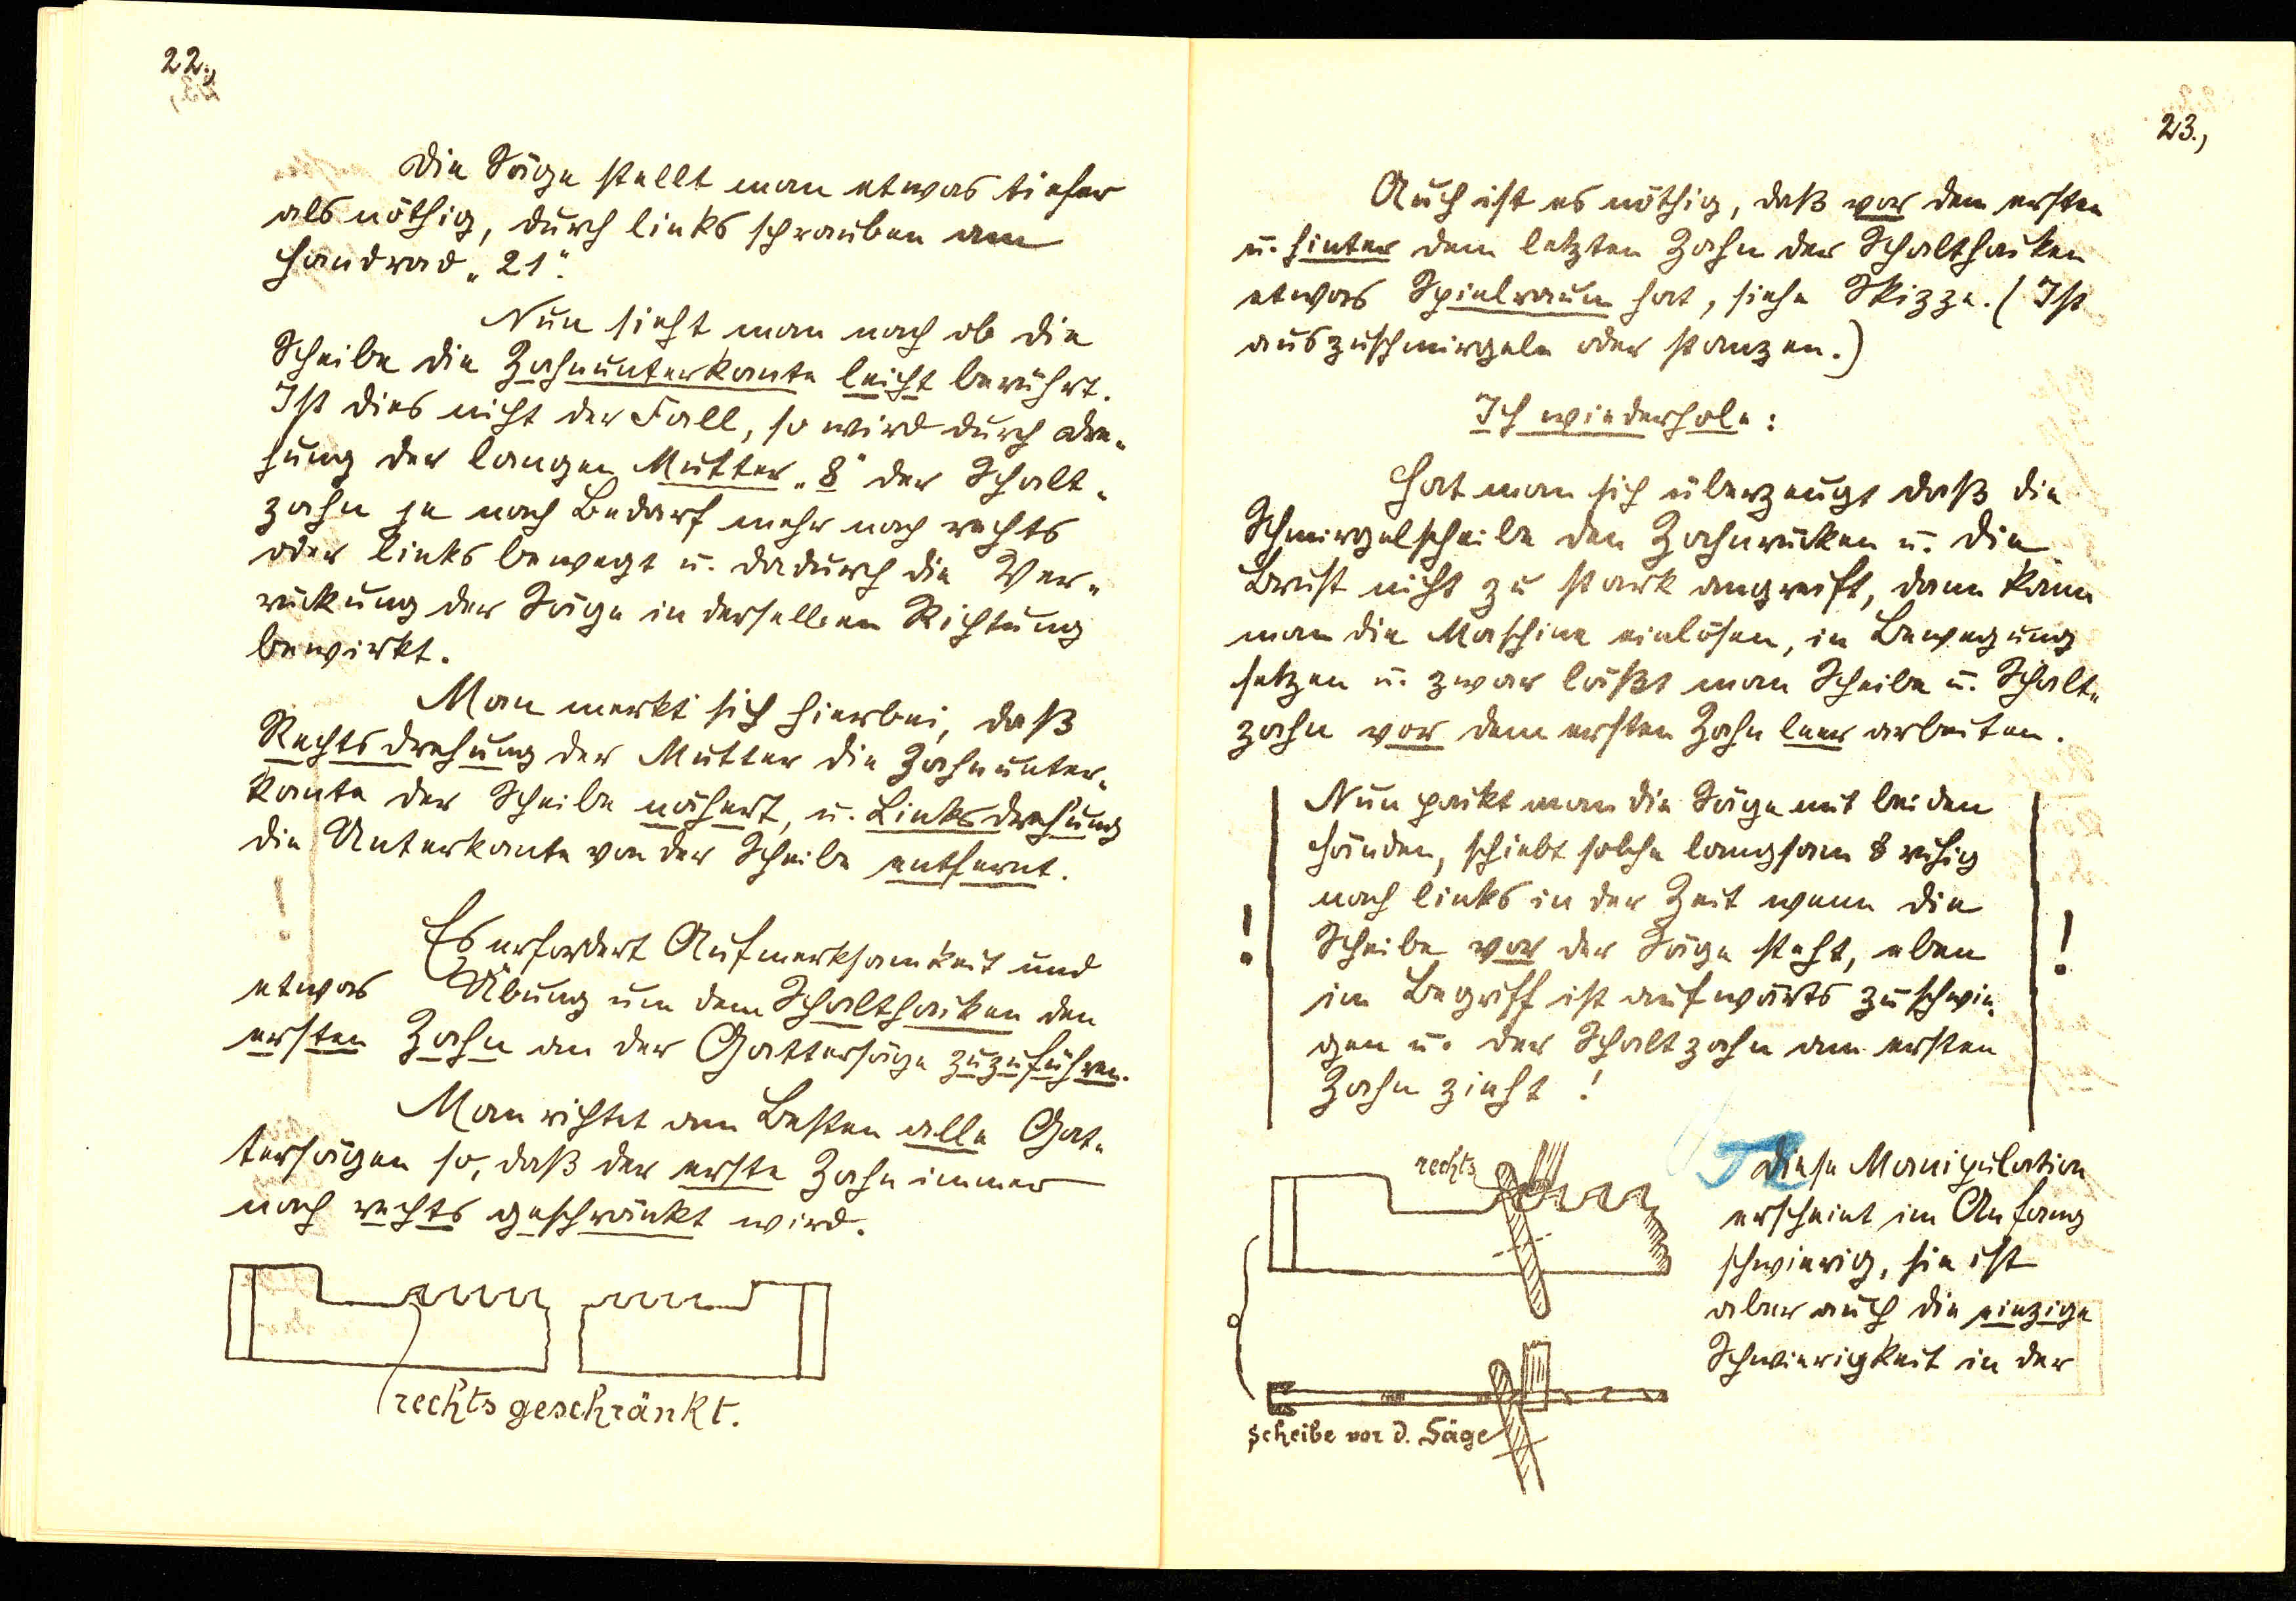 22.,
Die Säge stellt man etwas tiefer
als nöthig, durch links schrauben am
Handrad „21“.
Nun sieht man nach ob die
Scheibe die Zahnunterkante leicht berührt.
Ist dies nicht der Fall, so wird durch Dre-
hung der langen Mutter „8“ der Schalt-
zahn je nach Bedarf mehr nach rechts
oder links bewegt u. dadurch die Ver-
rückung der Säge in derselben Richtung
bewirkt.
Man merkt sich hierbei, daß
Rechtsdrehung der Mutter die Zahnunter-
kante der Scheibe nähert, u. Linksdrehung
die Unterkante von der Scheibe entfernt.
Es erfordert Aufmerksamkeit und
etwas Übung um dem Schalthaken den
ersten Zahn an der Gattersäge zuzuführen.
Man richtet am Besten alle Gat-
tersägen so, daß der erste Zahn immer
nach rechts geschränkt wird.
rechts geschränkt.
23.,
Auch ist es nöthig, daß vor dem ersten
u. hinter dem letzten Zahn der Schalthaken
etwas Spielraum hat, siehe Skizze. (Ist
auszuschmirgeln oder stanzen.)
Ich wiederhole:
Hat man sich überzeugt daß die
Schmirgelscheibe den Zahnrücken u. die
Brust nicht zu stark angreift, dann kann
man die Maschine einlösen, in Bewegung
setzen u. zwar läßt man Scheibe u. Schalt-
zahn vor dem ersten Zahn leer arbeiten.
Nun pakt man die Säge mit beiden
Händen, schiebt solche langsam & ruhig
nach links in der Zeit wenn die
! Scheibe vor der Säge steht, eben !
im Begriff ist aufwärts zu schwin-
gen u. der Schaltzahn am ersten
Zahn zieht !
rechts
Diese Manipulation
erscheint im Anfang
schwierig, sie ist
aber auch die einzige
Schwierigkeit in der
Scheibe vor d. Säge